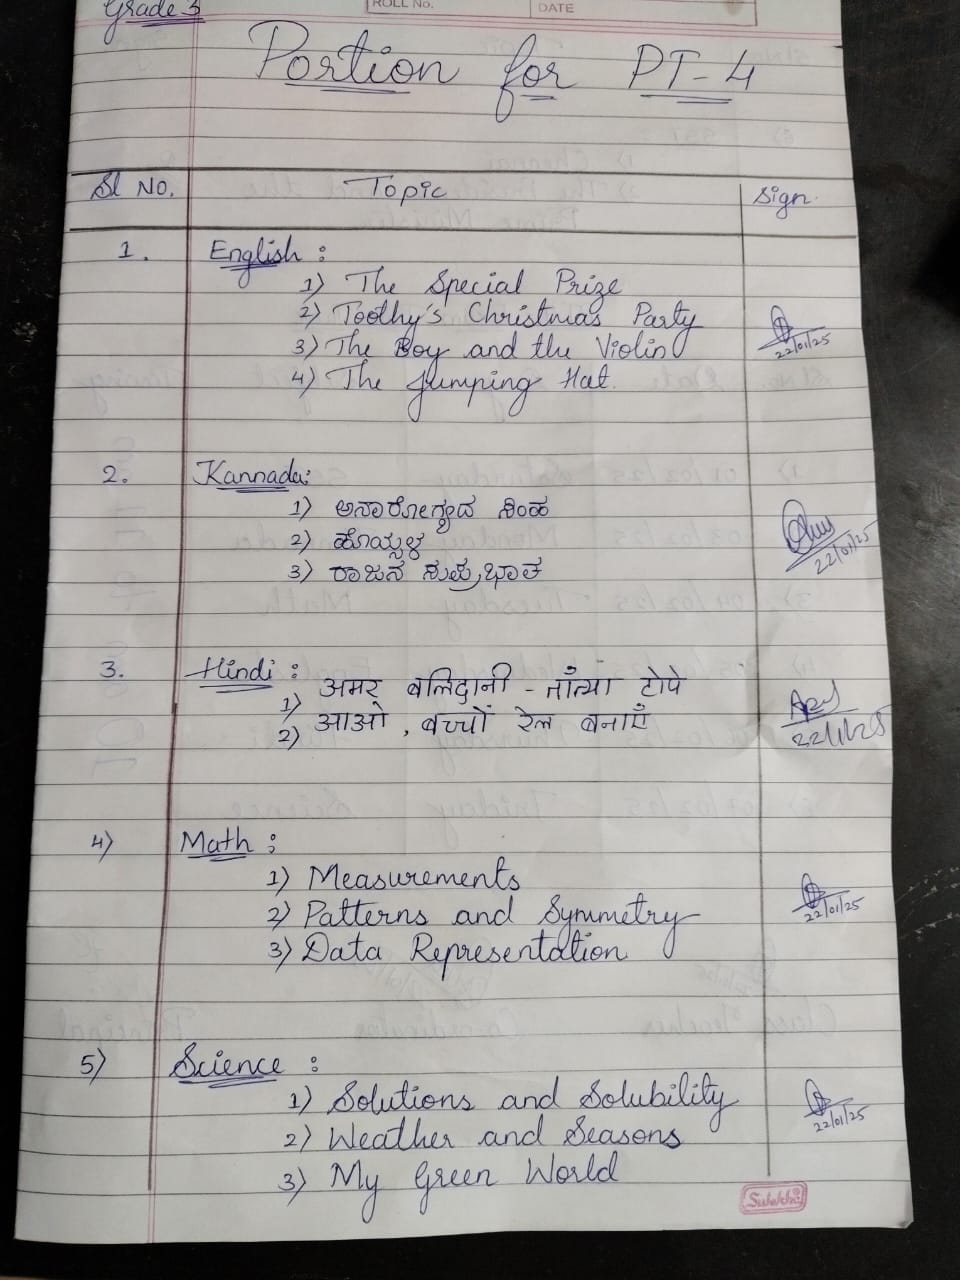 Grade 3
ROLL No.
DATE
Portion for PT-4
Sl No. Topic Sign
1. English :
1) The Special Prize
2) Toothy's Christmas Party
3) The Boy and the Violin
22/01/25
4) The Jumping Hat.
2. Kannada:
1) ಅನಾರೋಗ್ಯದ ಸಿಂಹ
2) ಹೊಯ್ಸಳ
22/01/25
3) ರಾಜನ ಸುಪ್ರಭಾತ
3. Hindi :
1) अमर बलिदानी - ताँत्या टोपे
2) आओ, बच्चों रेल बनाएँ
22/1/25
4) Math :
1) Measurements
2) Patterns and Symmetry
22/01/25
3) Data Representation
5) Science :
1) Solutions and Solubility
22/01/25
2) Weather and Seasons
3) My Green World
Sulekha